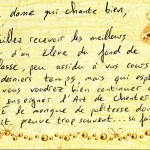 dame qui chante bien,
illez recevoir les meilleurs
d'un élève du fond de
lasse, peu assidu à vos cours
derniers temps, mais qui esp
vous voudrez bien continuer à
enseigner l'Art de Chanter
le manque de politesse dont
it preuve trop souvent... sa fai